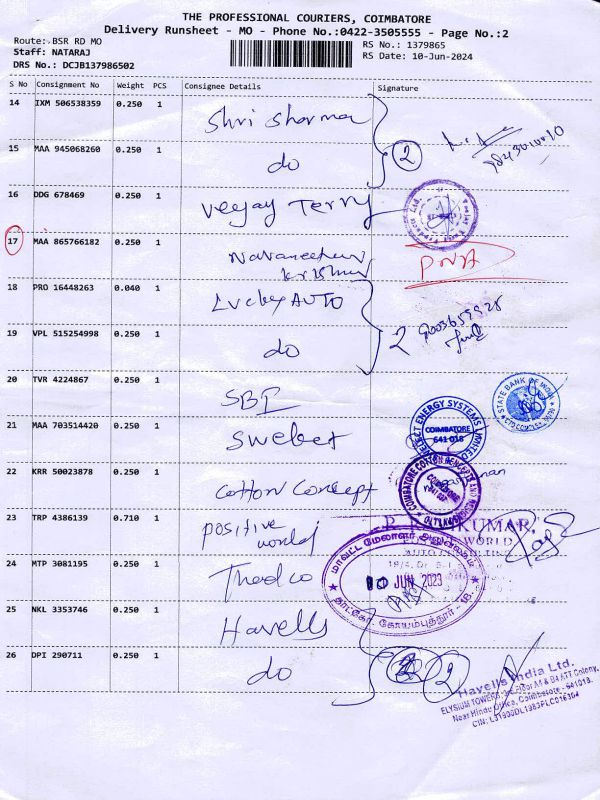 THE PROFESSIONAL COURIERS, COIMBATORE
Delivery Runsheet - MO - Phone No.:0422-3505555 - Page No.:2
Route:.BSR RD MO
Staff: NATARAJ
DRS No.: DCJB137986502
RS No.: 1379865
RS Date: 10-Jun-2024
S No Consignment No Weight PCS Consignee Details Signature
14 IXM 506538359 0.250 1 Shri Sharma
15 MAA 945068260 0.250 1 do 2
16 DDG 678469 0.250 1 Veejay Terry
17 MAA 865766182 0.250 1 Navaneetha Krishna PNA
18 PRO 16448263 0.040 1 Lucky AUTO
19 VPL 515254998 0.250 1 do 2
20 TVR 4224867 0.250 1 SBI
STATE BANK OF INDIA
21 MAA 703514420 0.250 1 Swelect
SWELECT ENERGY SYSTEMS LIMITED
COIMBATORE
641 018
22 KRR 50023878 0.250 1 Cotton Concept
23 TRP 4386139 0.710 1 positive world
24 MTP 3081195 0.250 1 Thadco
மாவட்ட மேலாளர் அலுவலகம்
10 JUN 2023
தாட்கோ கோயம்புத்தூர் - 18.
25 NKL 3353746 0.250 1 Havells
26 DPI 290711 0.250 1 do 2
Havells India Ltd.
ELYSIUM TOWERS, 3rd Floor A4 & B4 A77 Colony,
Near Hindu Office, Coimbatore - 641018.